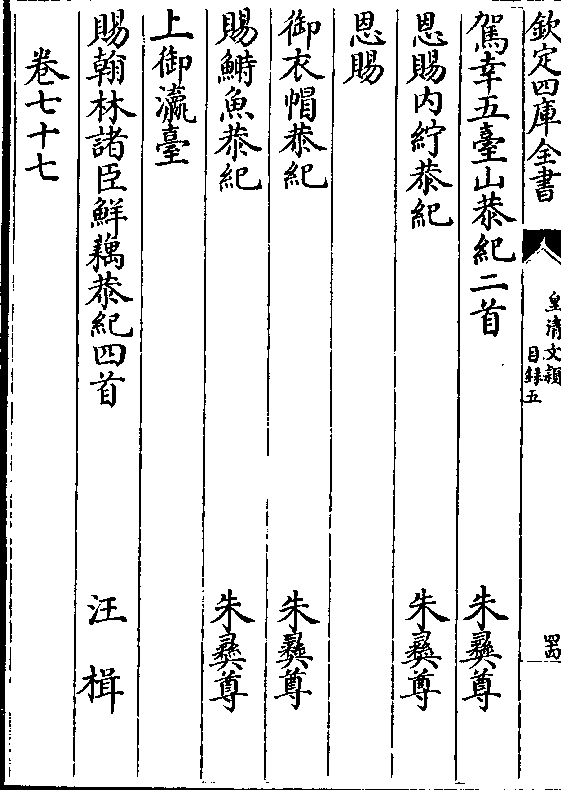 欽定四庫全書
皇清文頴
目錄五
駕幸五臺山恭紀二首 朱彝尊
恩賜内紵恭紀 朱彝尊
恩賜
御衣帽恭紀 朱彝尊
賜鰣魚恭紀 朱彝尊
上御瀛臺
賜翰林諸臣鮮藕恭紀四首 汪楫
卷七十七